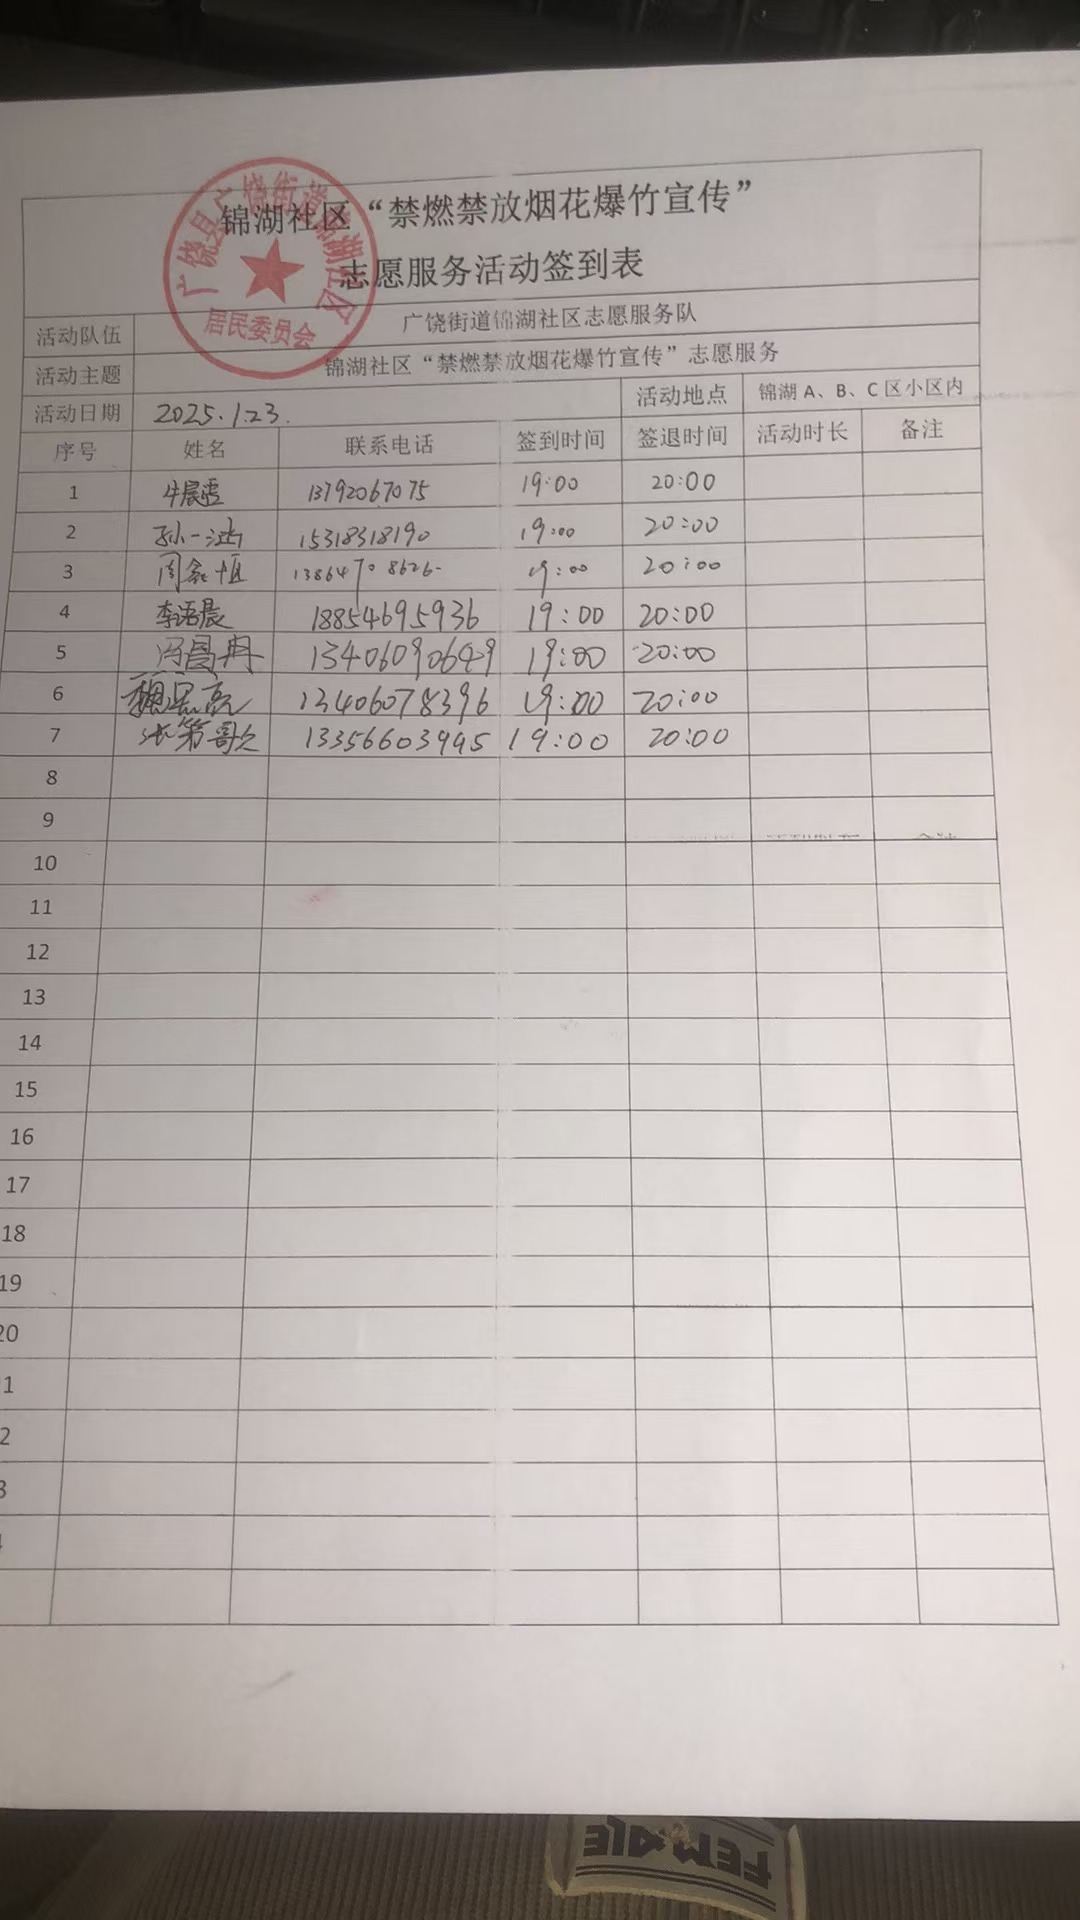 锦湖社区“禁燃禁放烟花爆竹宣传”
志愿服务活动签到表
广饶县广饶街道锦湖社区
居民委员会
活动队伍 广饶街道锦湖社区志愿服务队
活动主题 锦湖社区“禁燃禁放烟花爆竹宣传”志愿服务
活动日期 2025.1.23. 活动地点 锦湖 A、B、C 区小区内
序号 姓名 联系电话 签到时间 签退时间 活动时长 备注
1 牛晨雪 13792067075 19:00 20:00
2 孙一涵 15318318190 19:00 20:00
3 周鑫恒 13864708626 19:00 20:00
4 李语晨 18854695936 19:00 20:00
5 冯昌冉 13406090649 19:00 20:00
6 13406078396 19:00 20:00
7 张第歌 13356603945 19:00 20:00
8
9
10
11
12
13
14
15
16
17
18
19
20
1
2
3
FEMALE